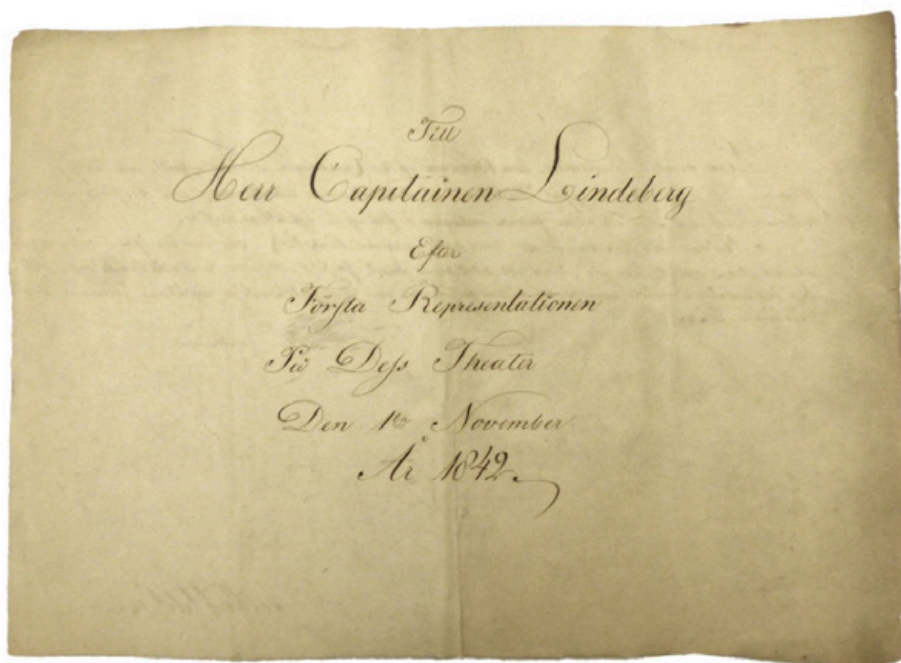 Till
Herr Capitainen Lindeberg
Efter
Första Representationen
På Dess Theater
Den 1sta November
År 1842.